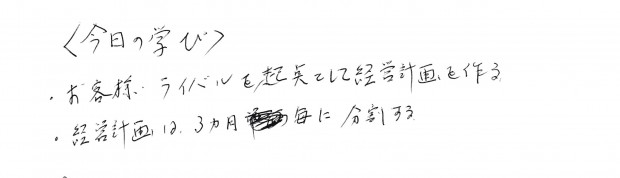 〈今日の学び〉
・お客様・ライバルを起点として経営計画を作る
・経営計画は、3カ月毎に分割する